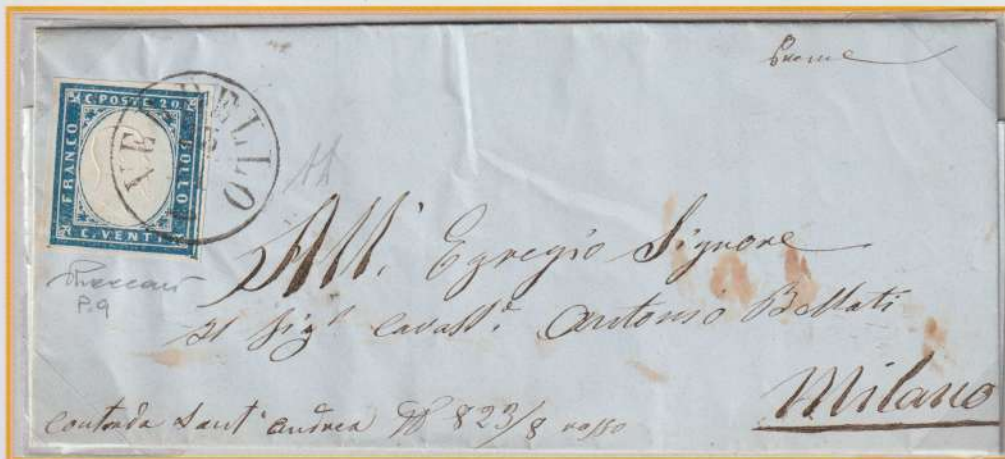 C. POSTE 20
FRANCO
BOLLO
C. VENTI
All' Egregio Signore
Il Sigr Cavall.e Antonio Bellati
Milano
Contrada Sant' Andrea N 823/8 rosso
P.9